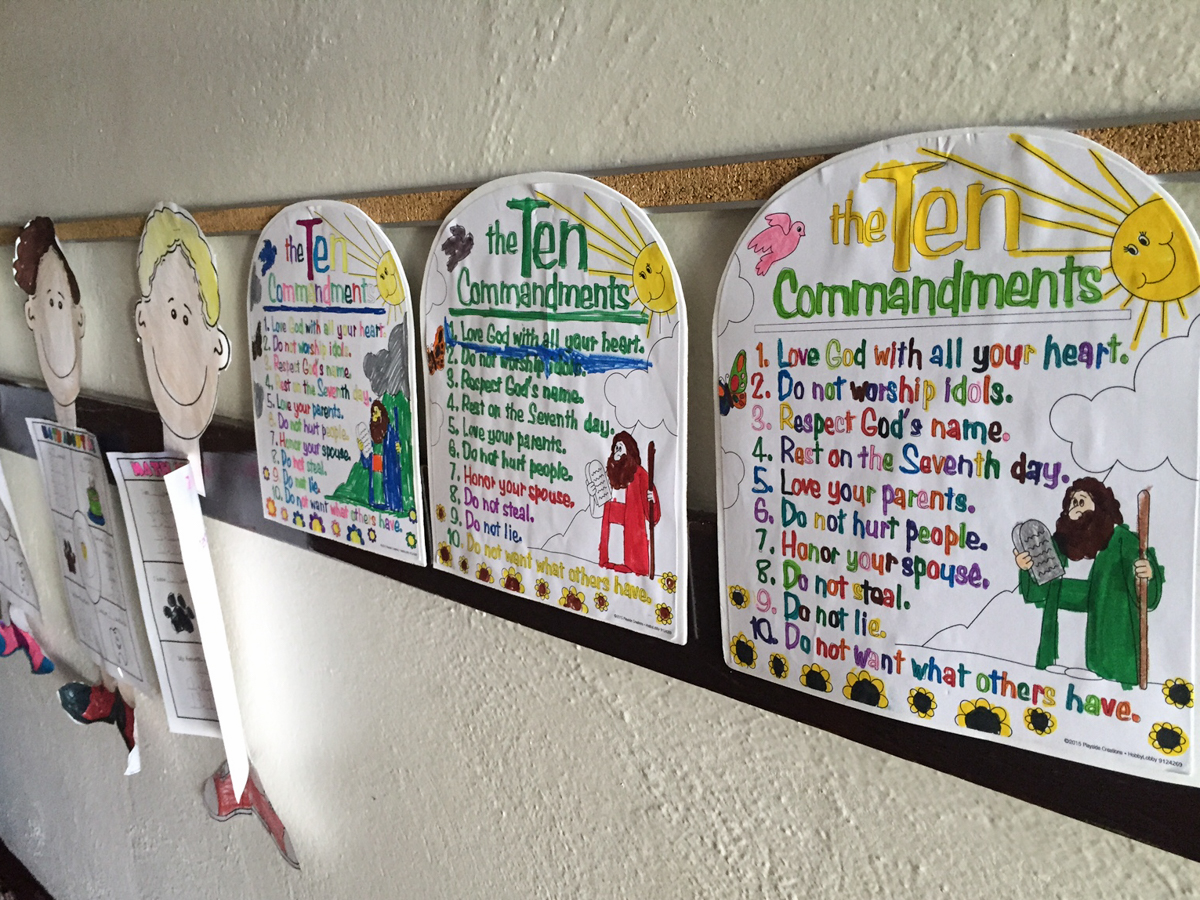 the Ten
Commandments
1. Love God with all your heart.
2. Do not worship idols.
3. Respect God's name.
4. Rest on the Seventh day.
5. Love your parents.
6. Do not hurt people.
7. Honor your spouse.
8. Do not steal.
9. Do not lie.
10. Do not want what others have.
the Ten
Commandments
1. Love God with all your heart.
2. Do not worship idols.
3. Respect God's name.
4. Rest on the Seventh day.
5. Love your parents.
6. Do not hurt people.
7. Honor your spouse.
8. Do not steal.
9. Do not lie.
10. Do not want what others have.
the Ten
Commandments
1. Love God with all your heart.
2. Do not worship idols.
3. Respect God's name.
4. Rest on the Seventh day.
5. Love your parents.
6. Do not hurt people.
7. Honor your spouse.
8. Do not steal.
9. Do not lie.
10. Do not want what others have.
©2015 Playside Creations • HobbyLobby 9124269